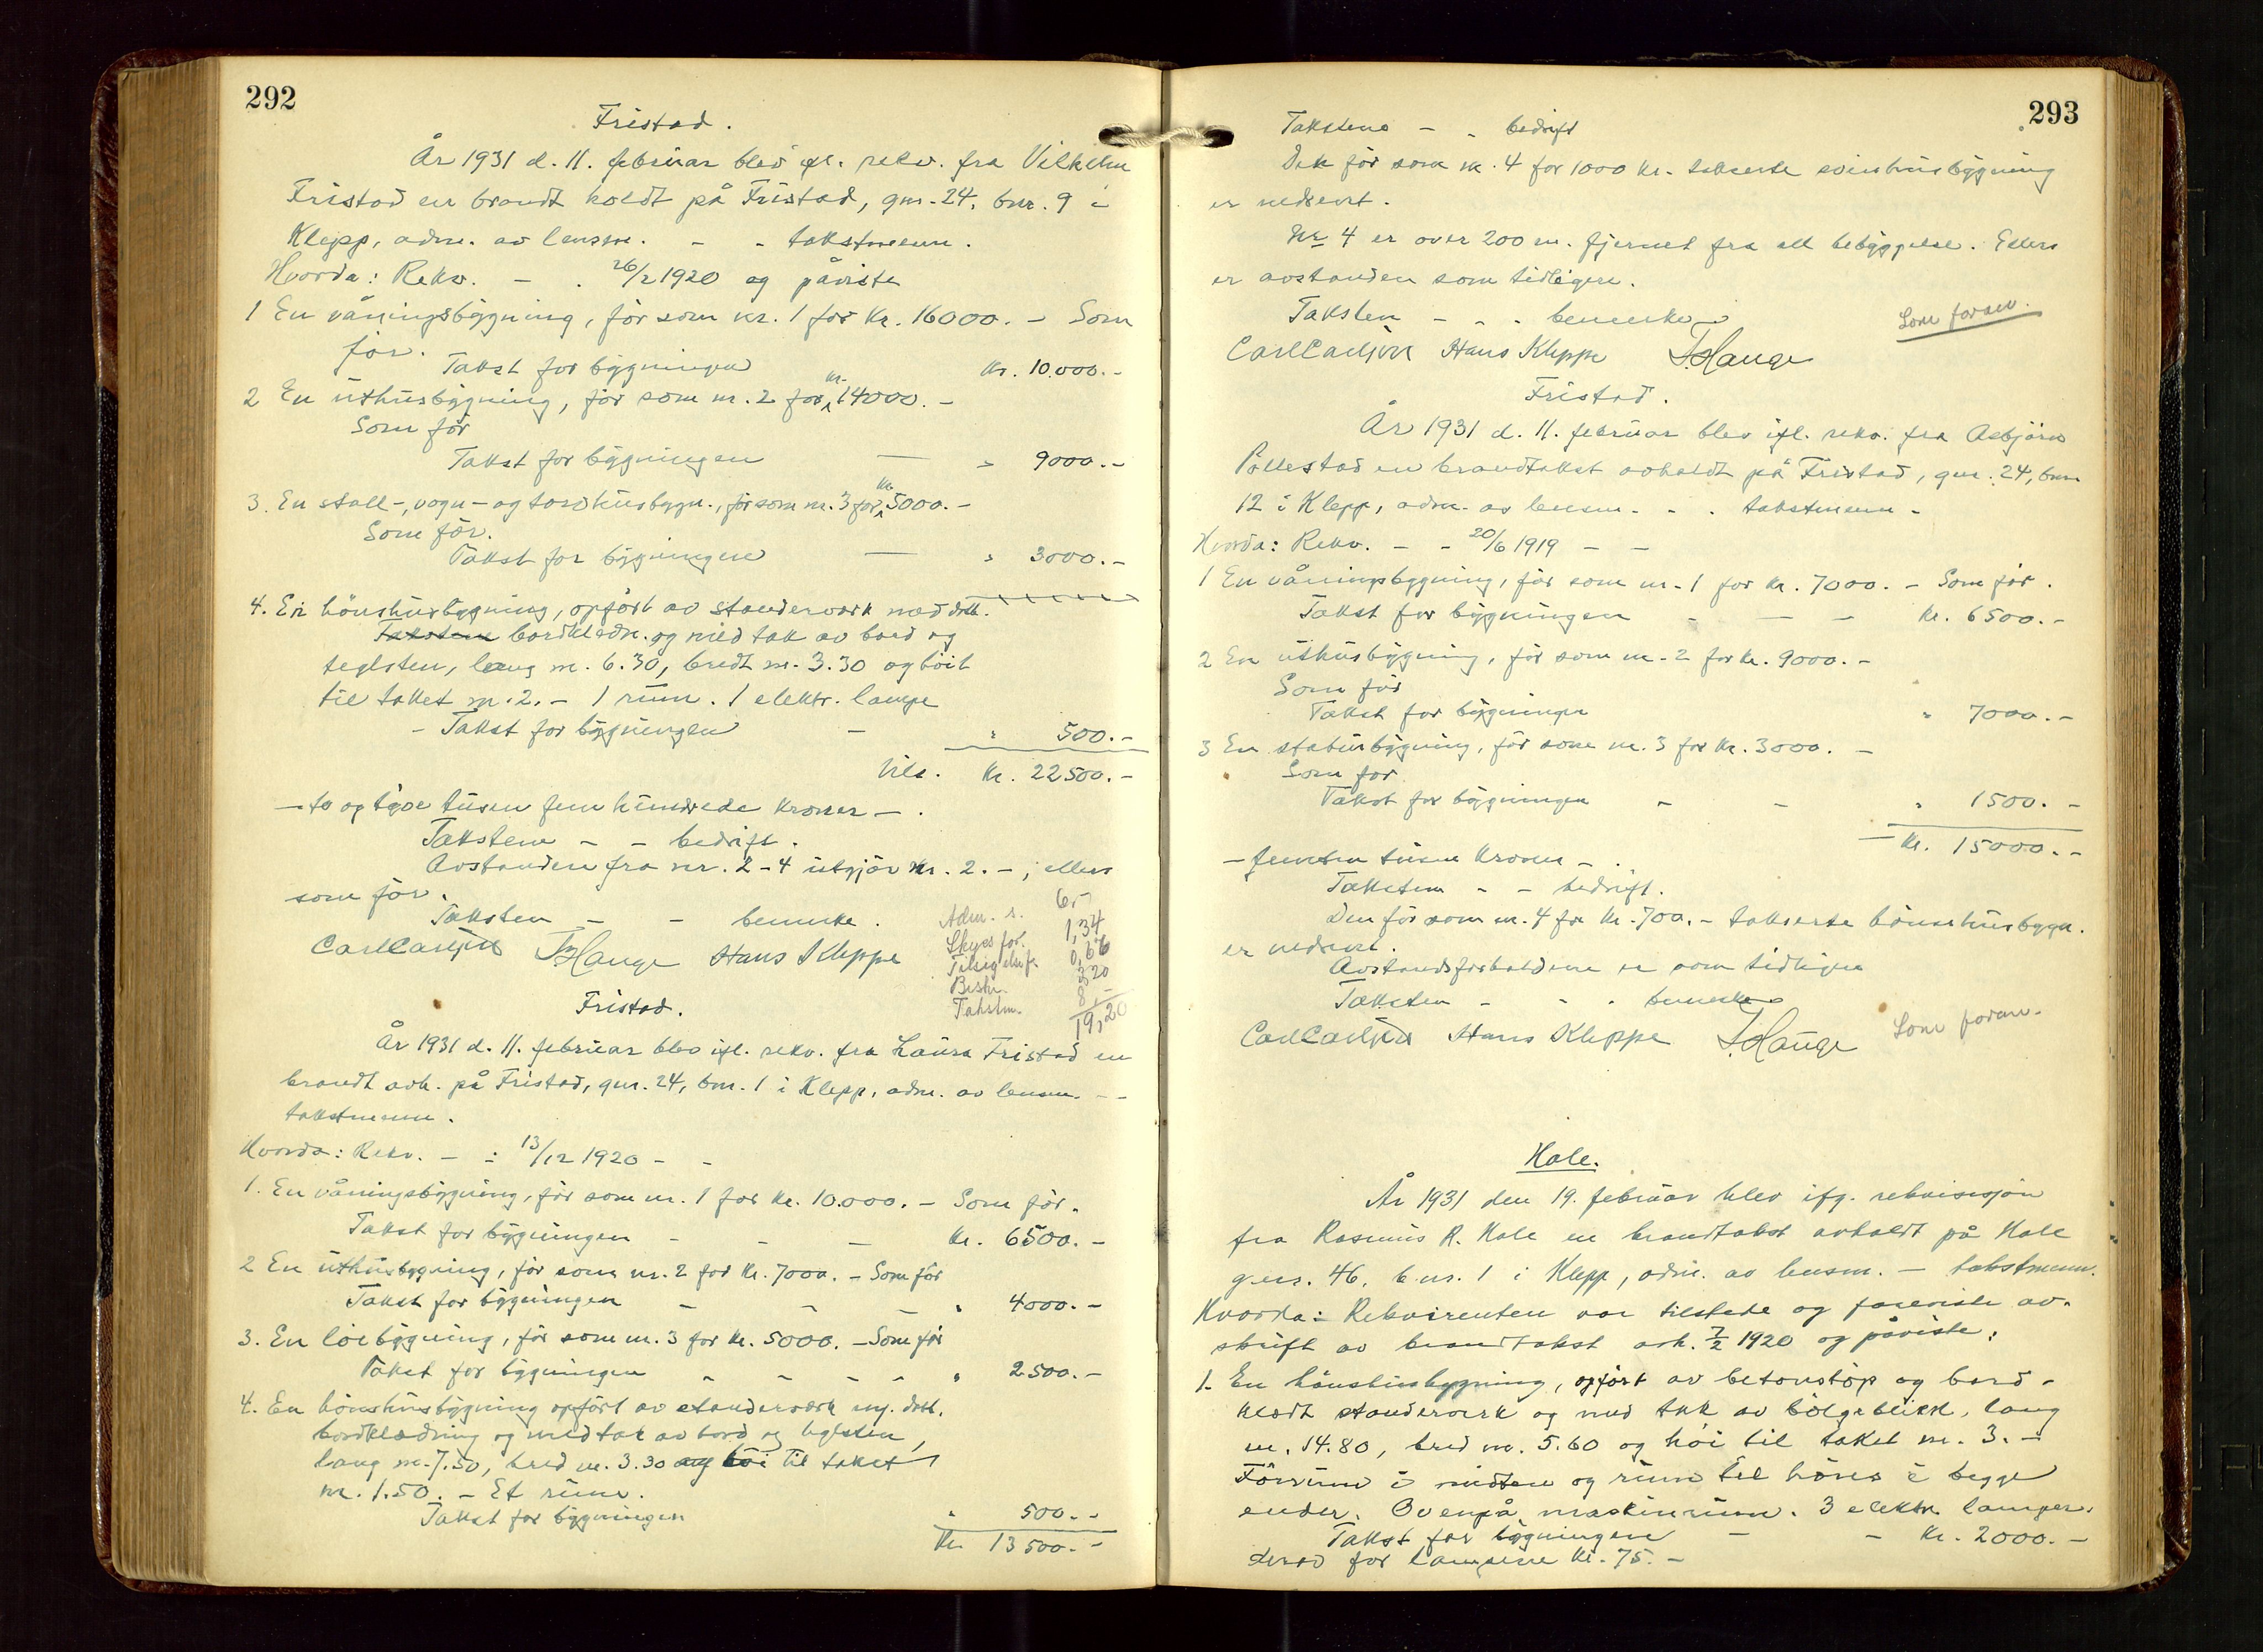 292
Fristad.
År 1931 d. 11. februar blev ifl. rekv. fra Vilhelm
Fristad en brandt holdt på Fristad, gnr. 24, bnr. 9 i
Klepp, adm. av lensm. - - takstmenn.
Hvorda: Rekv. - . 26/2 1920 og påviste
1 En våningsbygning, før som nr. 1 for kr. 16000. - Som
før.
Takst for bygningen kr. 10.000.-
2 En uthusbygning, før som nr. 2 for kr. 14000. -
Som før
Takst for bygningen — " 9000.-
3. En stall-, vogn- og torvhusbygn., før som nr. 3 for kr. 5000. -
Som før.
Takst for bygningen — " 3000.-
4. En hönshusbygning, opført av standerverk med dobb.
Taksten bordklædn. og med tak av bord og
teglsten, lang m. 6.30, bredt m. 3.30 og höit
til taket m. 2. - 1 rum. 1 elektr. lampe
- Takst for bygningen - " 500.-
Tils. kr. 22500.-
- to og tyve tusen fem hundrede kroner - .
Takstene - - bedrift.
Avstanden fra nr. 2-4 utgjör m. 2. -, ellers
som før.
Taksten - - bemerke.
Carl Carlsen THauge Hans Kleppe
Adm. s. 6.-
Skyss for. 1,34
Tilsig 0,66
Beskr. 3,20
Takstm. 8,-
19,20
Fristad.
År 1931 d. 11. februar blev ifl. rekv. fra Laura Fristad en
brandt avh. på Fristad, gnr. 24, bnr. 1 i Klepp, adm. av lensm. - -
takstmenn.
Hvorda: Rekv. - - 13/12 1920 - -
1. En våningsbygning, før som nr. 1 for kr. 10.000. - Som før.
Takst for bygningen - - — kr. 6500. -
2 En uthusbygning, før som nr. 2 for kr. 7000. - Som før
Takst for bygningen - - — " 4000. -
3. En löebygning, før som nr. 3 for kr. 5000. - Som før
Takst for bygningen - - - - " 2500. -
4. En hönshusbygning opført av standerverk m. dobb.
bordklædning og med tak av bord og teglsten,
lang m. 7.50, bred m. 3.30 og höi til taket
m. 1.50. - Et rum.
Takst for bygningen " 500. -
Kr. 13500. -
293
Takstene - - bedrift
Det før som nr. 4 for 1000 kr. takserte svinehusbygning
er nedrevet.
Nr. 4 er over 200 m. fjernet fra all bebyggelse. Ellers
er avstanden som tidligere.
Taksten - - - bemerke
Som foran.
Carl Carlsen Hans Kleppe THauge
Fristad.
År 1931 d. 11. februar blev ifl. rekv. fra Asbjörn
Pollestad en brandtakst avholdt på Fristad, gnr. 24, bnr.
12 i Klepp, adm. av lensm. - - takstmenn -
Hvorda: Rekv. - - 20/6 1919 - -
1 En våningsbygning, før som nr. 1 for kr. 7000. - Som før.
Takst for bygningen - — - kr. 6500. -
2 En uthusbygning, før som nr. 2 for kr. 9000. -
Som før
Takst for bygningen " 7000. -
3 En stabursbygning, før som nr. 3 for kr. 3000. -
Som før
Takst for bygningen - - " 1500. -
Kr. 15000. -
- femten tusen kroner - .
Takstene - - bedrift.
Den før som nr. 4 for kr. 700. - takserte hönsehusbygn.
er nedrevet.
Avstandsforholdene er som tidligere
Taksten - - - bemerke
Carl Carlsen Hans Kleppe THauge
Som foran.
Hole.
År 1931 den 19. februar blev ifg. rekvisisjon
fra Rasmus R. Hole en brandtakst avholdt på Hole
gnr. 46, b.nr. 1 i Klepp, adm. av lensm. - takstmenn.
Hvorda: Rekvirenten var tilstede og foreviste av-
skrift av brandtakst avh. 7/2 1920 og påviste:
1. En hönsehusbygning, opført av betonstöp og bord-
klædt standerverk og med tak av bölgeblikk, lang
m. 14.80, bred m. 5.60 og höi til taket m. 3. -
Fôrrum i midten og rum til höns i begge
ender. Ovenpå maskinrum. 3 elektr. lamper.
Takst for bygningen - - kr. 2000. -
derav for lampene kr. 75. -